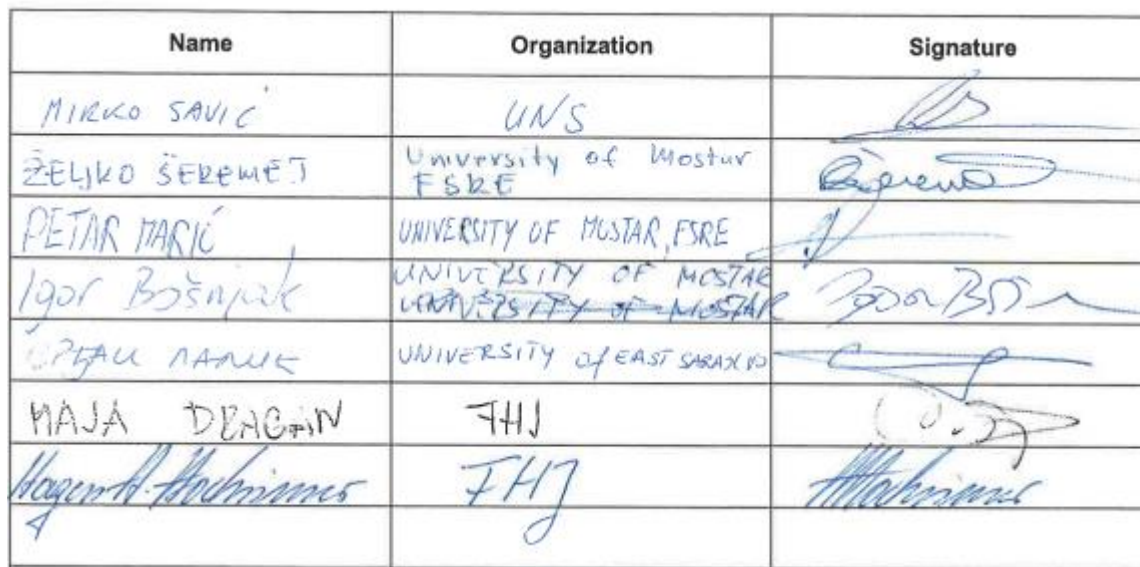 Name Organization Signature
MIRKO SAVIĆ UNS
ŽELJKO ŠEREMET University of Mostar
FSRE
PETAR MARIĆ UNIVERSITY OF MOSTAR, FSRE
Igor Bošnjak UNIVERSITY OF MOSTAR
UNIVERSITY OF MOSTAR
UNIVERSITY of EAST SARAJEVO
MAJA DRAGAN FHJ
Hagen H. Hochrinner FHJ